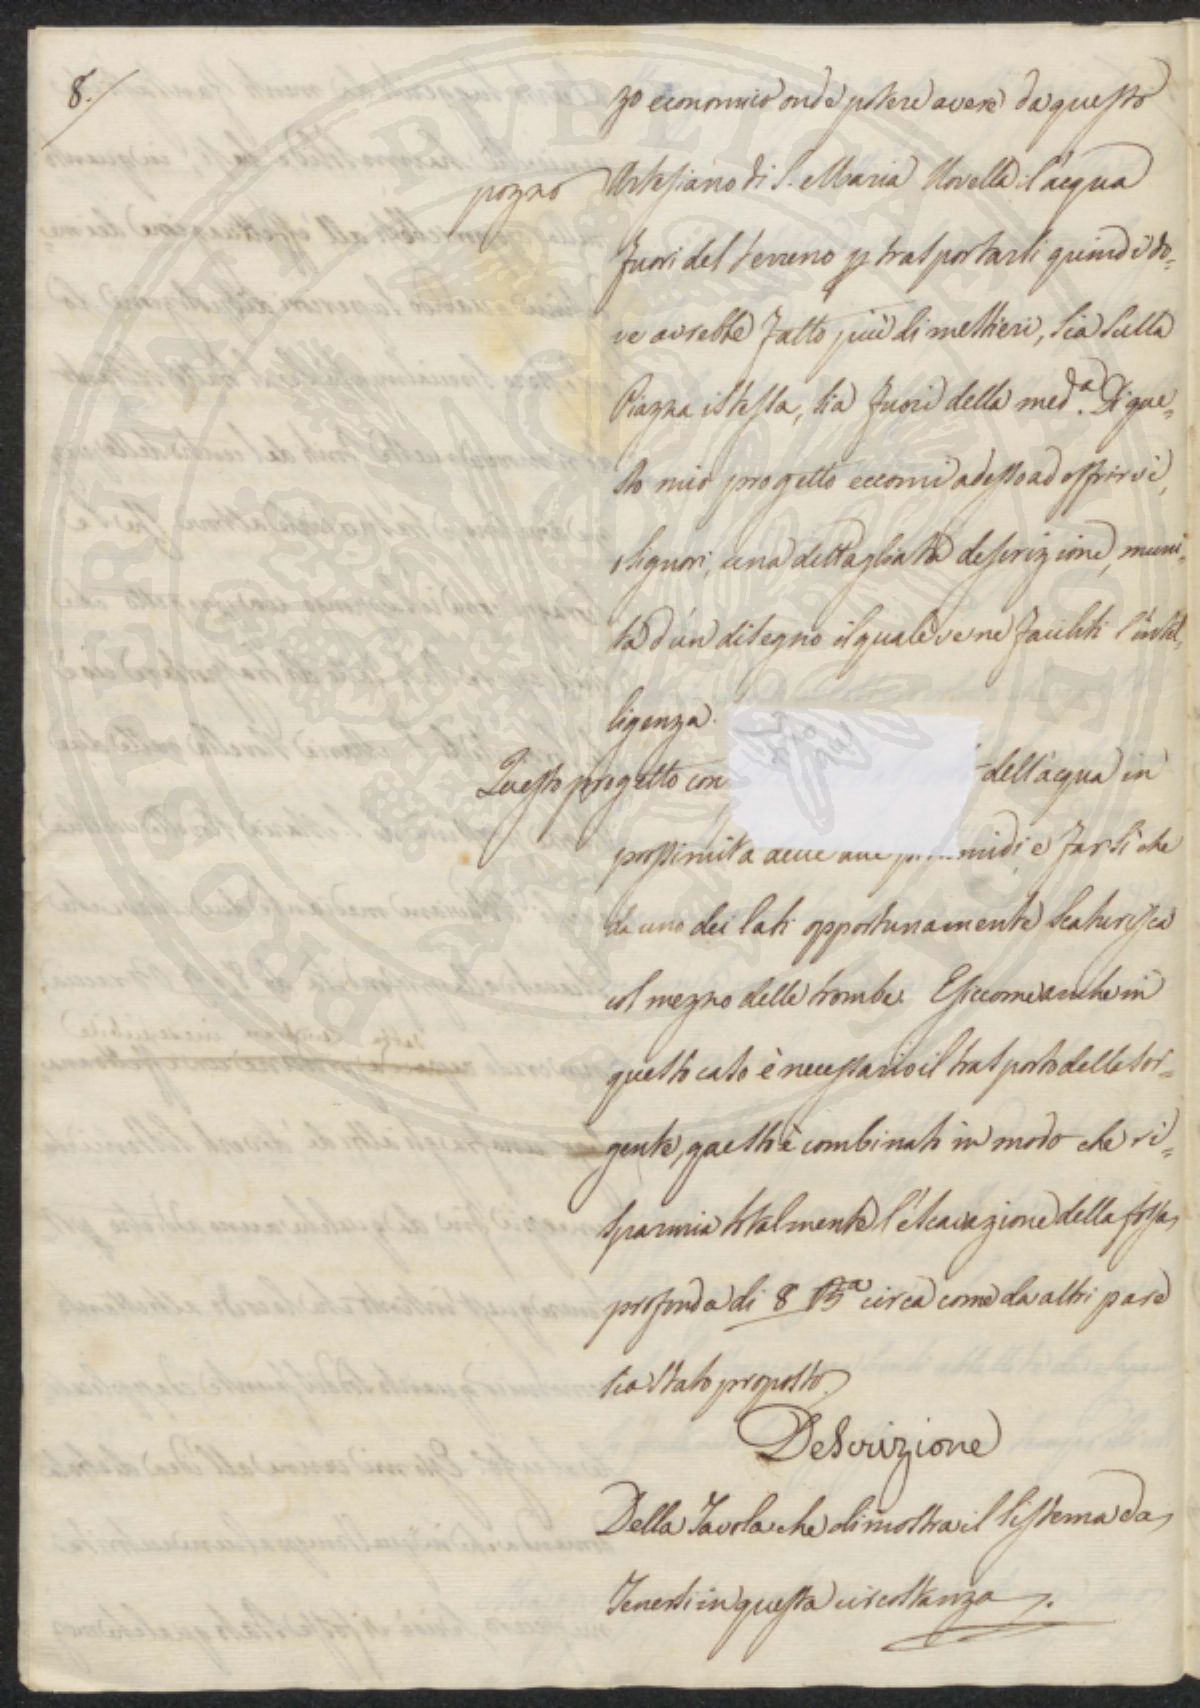 8.
zo economico onde potere avere da questo
pozzo Artesiano di S. Maria Novella l'acqua
fuori del terreno p trasportarli quindi do=
ve avrebbe fatto più di mestieri, sia sulla
Piazza istessa, sia fuori della med.a Di que=
sto mio progetto eccomi adesso ad offrirvi,
o Signori, una dettagliata descrizione, muni=
ta d'un disegno il quale ve ne faciliti l'intel=
ligenza.
Questo progetto con dell'acqua in
prossimità delle due e far sì che
da uno dei lati opportunamente scaturisca
col mezzo delle trombe. E siccome anche in
questo caso è necessario il trasporto delle sor=
gente, questo è combinato in modo che ri=
sparmia totalmente l'escavazione della fossa
profonda di 8 Ba circa come da altri pare
sia stato proposto.
Descrizione
Della Tavola che dimostra il sistema da
Tenersi in questa circostanza.